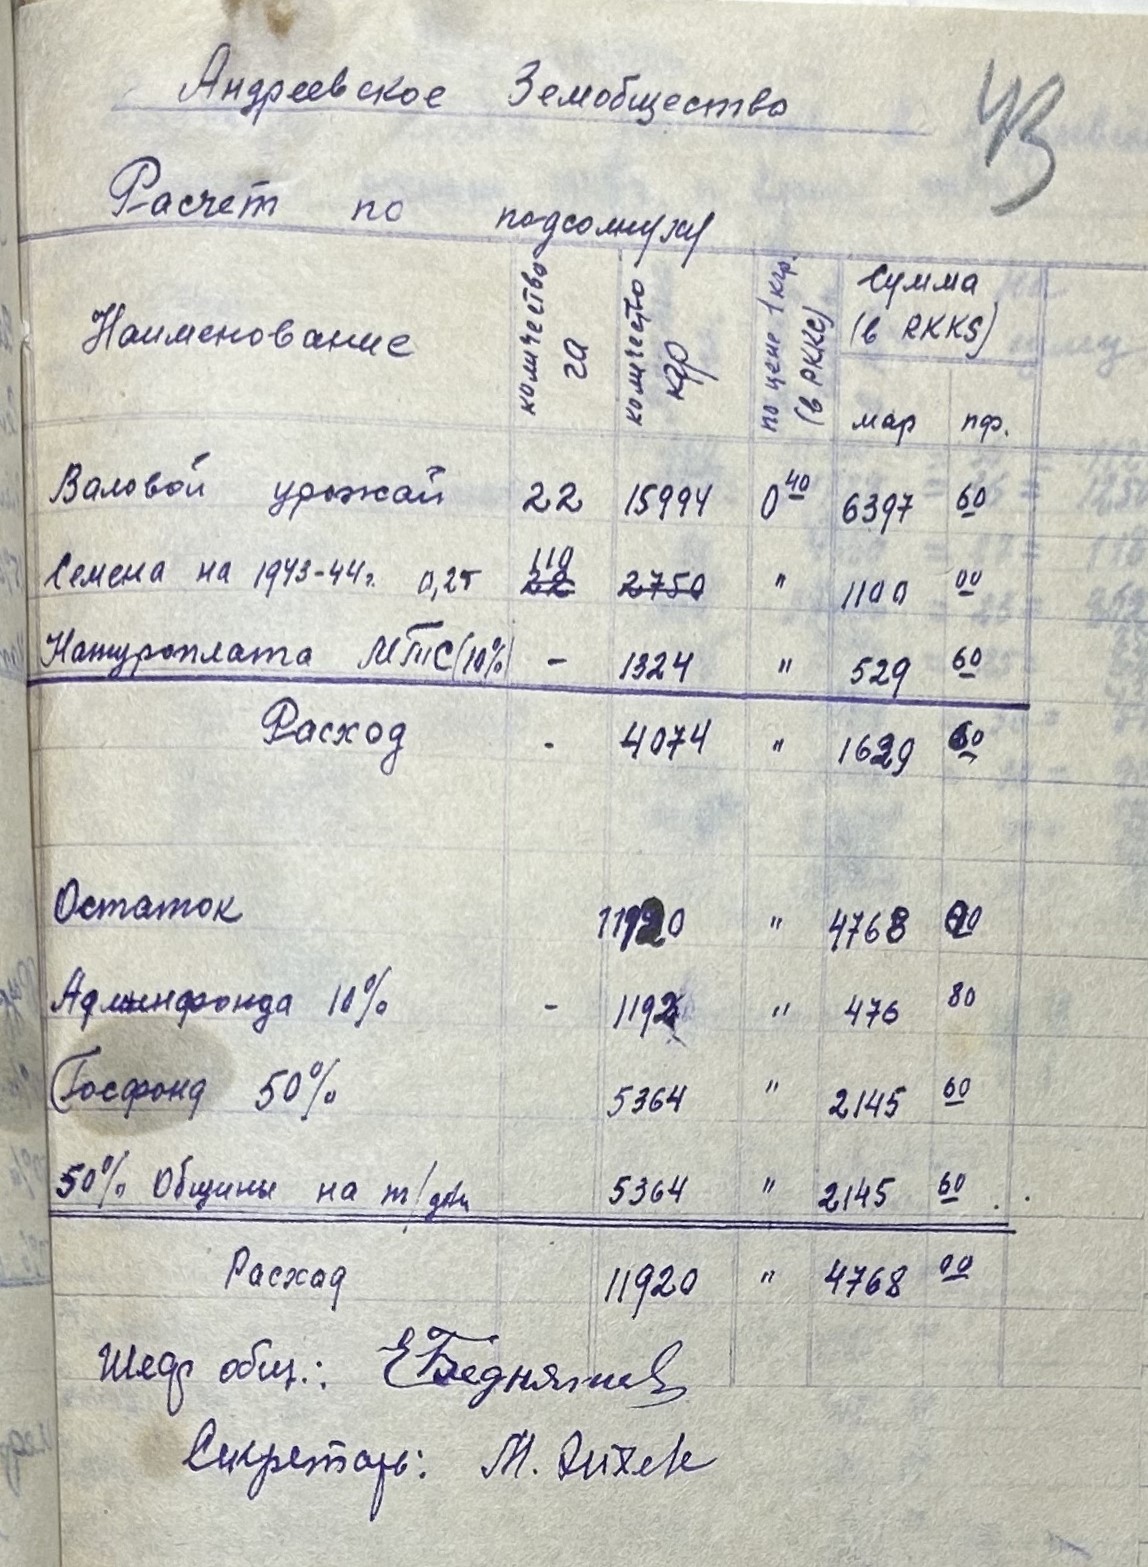 Андреевское Земобщество
43
Расчет по подсолнуху
Наименование количество га количество кгр по цене 1 кгр. (в РККС) Сумма (в RKKS)
мар пф.
Валовой урожай 22 15994 0 40 6397 60
Семена на 1943-44г. 0,25 110 22 2750 " 1100 00
Натуроплата МТС (10%) - 1324 " 529 60
Расход - 4074 " 1629 60
Остаток 11920 " 4768 00
Админфонда 10% - 1192 " 476 80
Госфонд 50% 5364 " 2145 60
50% Общины на т/дни 5364 " 2145 60
Расход 11920 " 4768 00
общ.: Е Бедняшев
Секретарь: М.